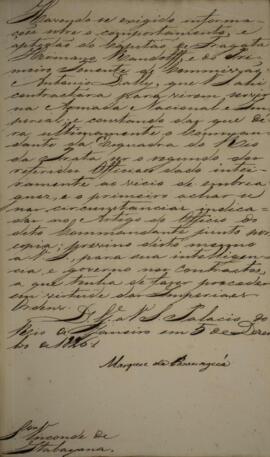 Havendo-se exigido informa-
ções sobre o comportamento, e
aptidão do Capitão de Fragata
e do Pri-
meiro Tenente
e Antonio que Vossa Senhoria
contractara para virem servir
na Armada Nacional e Im-
perial; e constando da que
ultimamente o Comman-
dante da Esquadra do Rio
da Prata ser o segundo dos
referidos Officiaes dado intei-
ramente ao vicio de embria-
guez, e o primeiro achar-se
nas circunstancias indica-
das no Artigo do Officio do
dito Commandante junto por
copia; previno disto mesmo
a V.S. para sua intelligen-
cia, e governo nos contractos,
a que tenha de fazer proceder
em virtude das Imperiaes
Ordens.
Palacio do
Rio de Janeiro em 5 de Dezem-
bro de 1826.
Marquez de Paranaguá
Senr.
Visconde de
Itabayana.